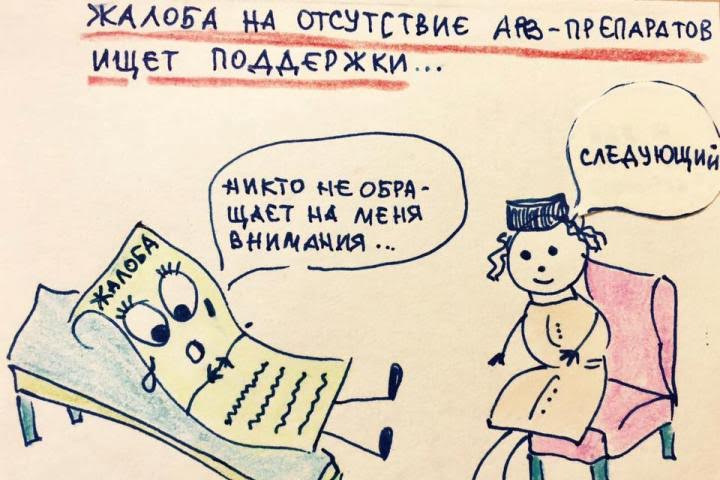 ЖАЛОБА НА ОТСУТСТВИЕ АРВ-ПРЕПАРАТОВ
ИЩЕТ ПОДДЕРЖКИ...
СЛЕДУЮЩИЙ
НИКТО НЕ ОБРА-
ЩАЕТ НА МЕНЯ
ВНИМАНИЯ...
ЖАЛОБА